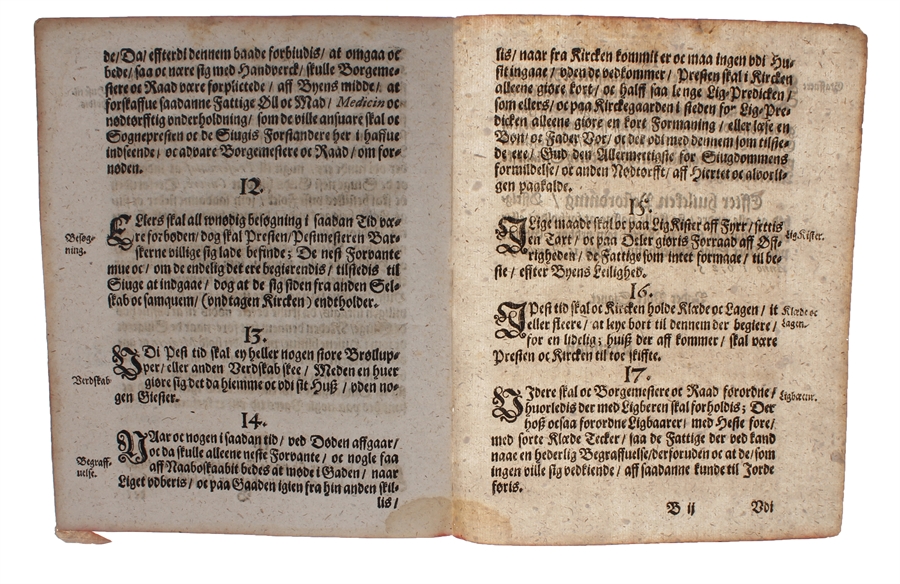 de/ Da/ effterdi dennem baade forbiudis/ at omgaa oc
bede/ saa oc være sig med Handverck/ skulle Borgeme-
stere oc Raad være forplictede/ aff Byens midde/ at
forskaffue saadanne Fattige Øll oc Mad/ Medicin oc
nødtørfftig vnderholdning/ som de ville ansuare skal oc
Sognepresten oc de Siugis Forstandere her i haffue
indseende/ oc advare Borgemestere oc Raad/ om for-
nøden.
12.
Besøg-
ning.
Ellers skal all vnødig besøgning i saadan Tid væ-
re forbøden/ dog skal Presten/ Pestmesteren Bar-
skerne villige sig lade befinde; De nest Forvante
mue oc/ om de endelig det ere begierendis/ tilstedis til
Siuge at indgaae/ dog at de sig siden fra anden Sel-
skab oc samquem/ (vndtagen Kircken) endtholder.
13.
Verdskab
VDi Pest tid skal ey heller nogen store Brøllup-
per/ eller anden Verdskab skee/ Meden en huer
giøre sig det da hiemme oc vdi sit Huß/ vden no-
gen Giester.
14.
Begraff-
uelse.
NAar oc nogen i saadan tid/ ved Døden affgaar/
oc da skulle alleene neste Forvante/ oc nogle faa
aff Naaboskaabit bedes at møde i Gaden/ naar
Liget vdberis/ oc paa Gaaden igien fra hin anden skil-
lis/
lis/ naar fra Kircken kommit er oc maa ingen vdi Hu-
sit ingaae/ vden de vedkommer/ Presten skal i Kircken
alleene giøre kort/ oc halff saa lenge Lig-Predicken/
som ellers/ oc paa Kirckegaarden i steden for Lig-Pre-
dicken alleene giøre en kort Formaning/ eller læse en
Bøn/ oc Fader Vor/ oc der vdi med dennem som tilste-
de ere/ Gud den Allermectigste for Siugdommens
formildelse/ oc anden Nødtørfft/ aff Hiertet oc alvorli-
gen paakalde.
15.
Lig Kister.
ILige maade skal oc paa Lig Kister aff Fyrr/ settis
en Taxt/ oc paa Deler giøris Forraad aff Øff-
righeden/ de Fattige som intet formaae/ til be-
ste/ effter Byens Leilighed.
16.
Klæde oc
Lagen.
IPest tid skal oc Kircken holde Klæde oc Lagen/ it
eller fleere/ at leye bort til dennem der begiere/
for en lidelig; huiß der aff kommer/ skal være
Presten oc Kircken til toe skiffte.
17.
Ligbærer.
VJdere skal oc Borgemestere oc Raad forordne/
huorledis der med Ligberen skal forholdis; Der
hoß oc saa forordne Ligbaarer/ med Heste fore/
med sorte Klæde Tecker/ saa de Fattige der ved kand
naae en hederlig Begraffuelse/ derforuden oc at de/ som
ingen ville sig vedkiende/ aff saadanne kunde til Jorde
føris.
B ij
Vdi